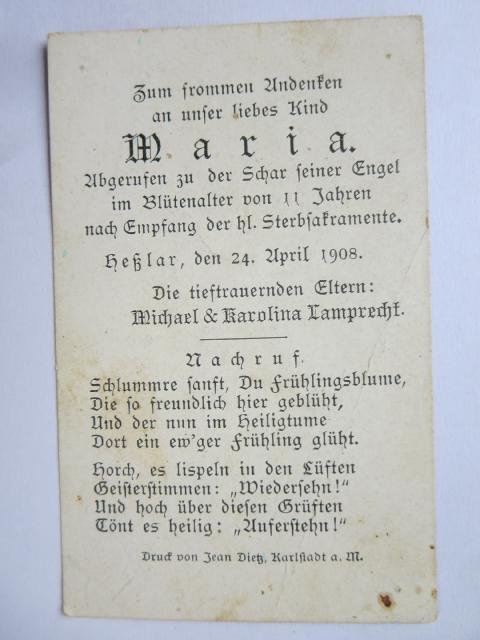 Zum frommen Andenken
an unser liebes Kind
Maria.
Abgerufen zu der Schar seiner Engel
im Blütenalter von 11 Jahren
nach Empfang der hl. Sterbsakramente.
Heßlar, den 24. April 1908.
Die tieftrauernden Eltern:
Michael & Karolina Lamprecht.
Nachruf.
Schlummre sanft, Du Frühlingsblume,
Die so freundlich hier geblüht,
Und der nun im Heiligtume
Dort ein ew'ger Frühling glüht.
Horch, es lispeln in den Lüften
Geisterstimmen: „Wiedersehn!"
Und hoch über diesen Grüften
Tönt es heilig: „Auferstehn!"
Druck von Jean Dietz, Karlstadt a. M.